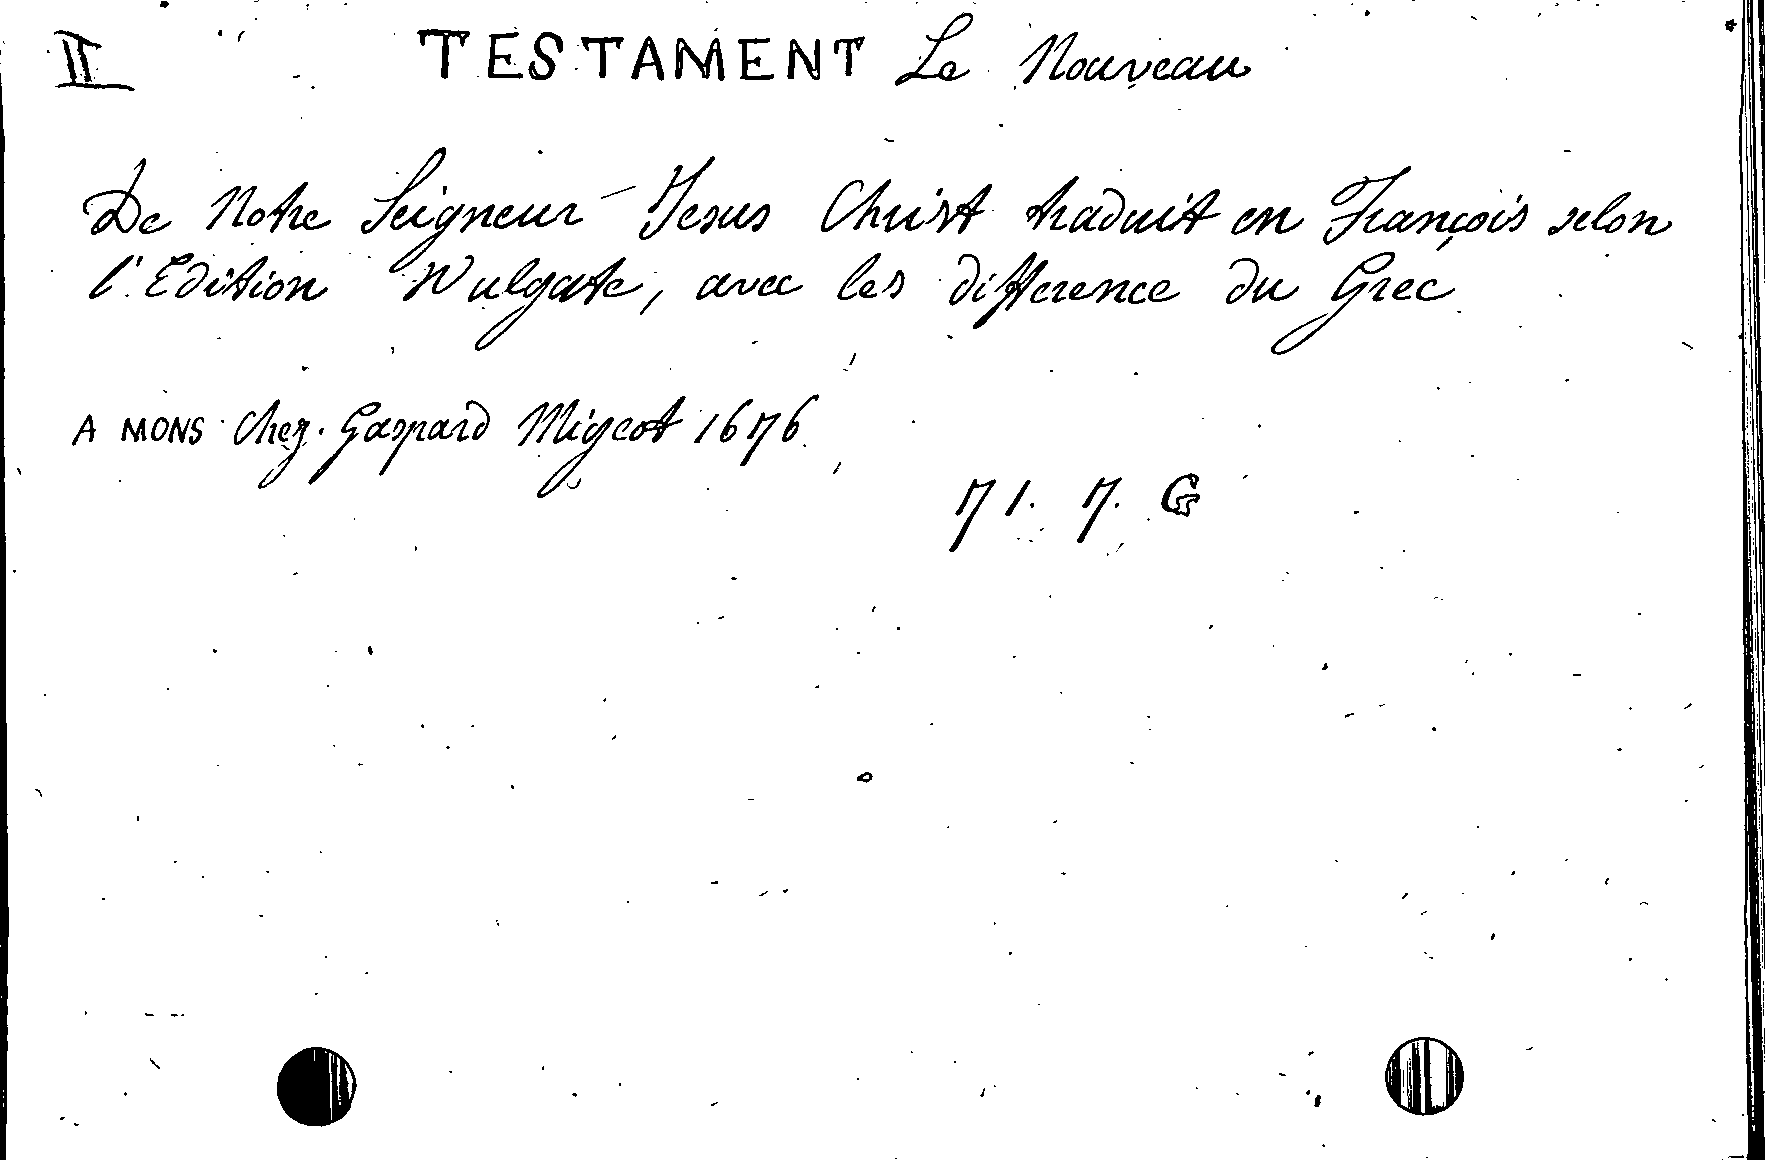 II TESTAMENT Le Nouveau
De Notre Seigneur Jesus Christ traduit en François selon
l'Edition Wulgate, avec les difference du Grec
A MONS Chez. Gaspard Migeot 1676.
71. 7. G